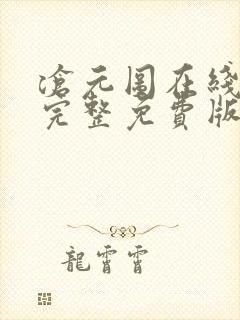 滄元图在綫
完整免費版
龍霄霄